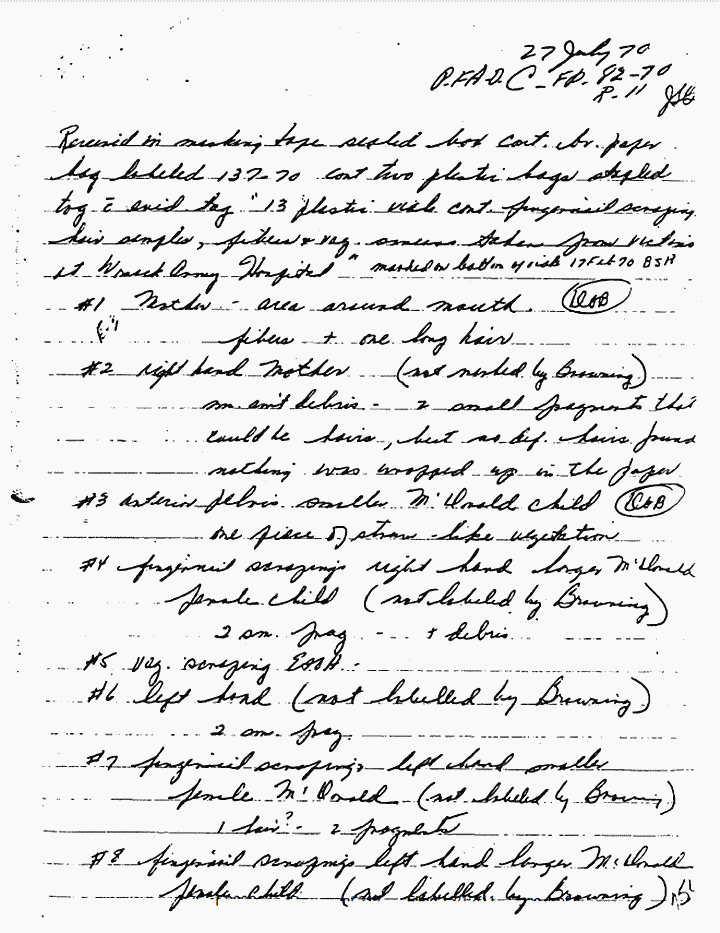 27 July 70
P.FA.D. C-FP. 82-70
R-11 JSG
Received in masking tape sealed box cont. br. paper
bag labeled 137-70 cont two plastic bags stapled
tog c̄ evid tag "13 plastic vials cont. fingernail scraping,
hair samples, fibers & vag. smears taken from victims
at Womack Army Hospital" marked on bottom of vials 17 Feb 70 BSH
#1 Mother - area around mouth.
fibers + one long hair
#2 right hand Mother (not marked by Browning)
sm. amt debris - 2 small fragments that
could be hairs, but no def. hairs found
nothing was wrapped up in the paper
#3 anterior pelvis smaller McDonald child
one piece of straw-like vegetation
#4 fingernail scrapings right hand larger McDonald
female child (not labeled by Browning)
2 sm. frag - + debris
#5 vag. scraping
#6 left hand (not labelled by Browning)
2 sm. frag.
#7 fingernail scrapings left hand smaller
female McDonald (not labeled by Browning)
1 hair? - 2 fragments
#8 fingernail scrapings left hand larger McDonald
female child (not labelled by Browning)